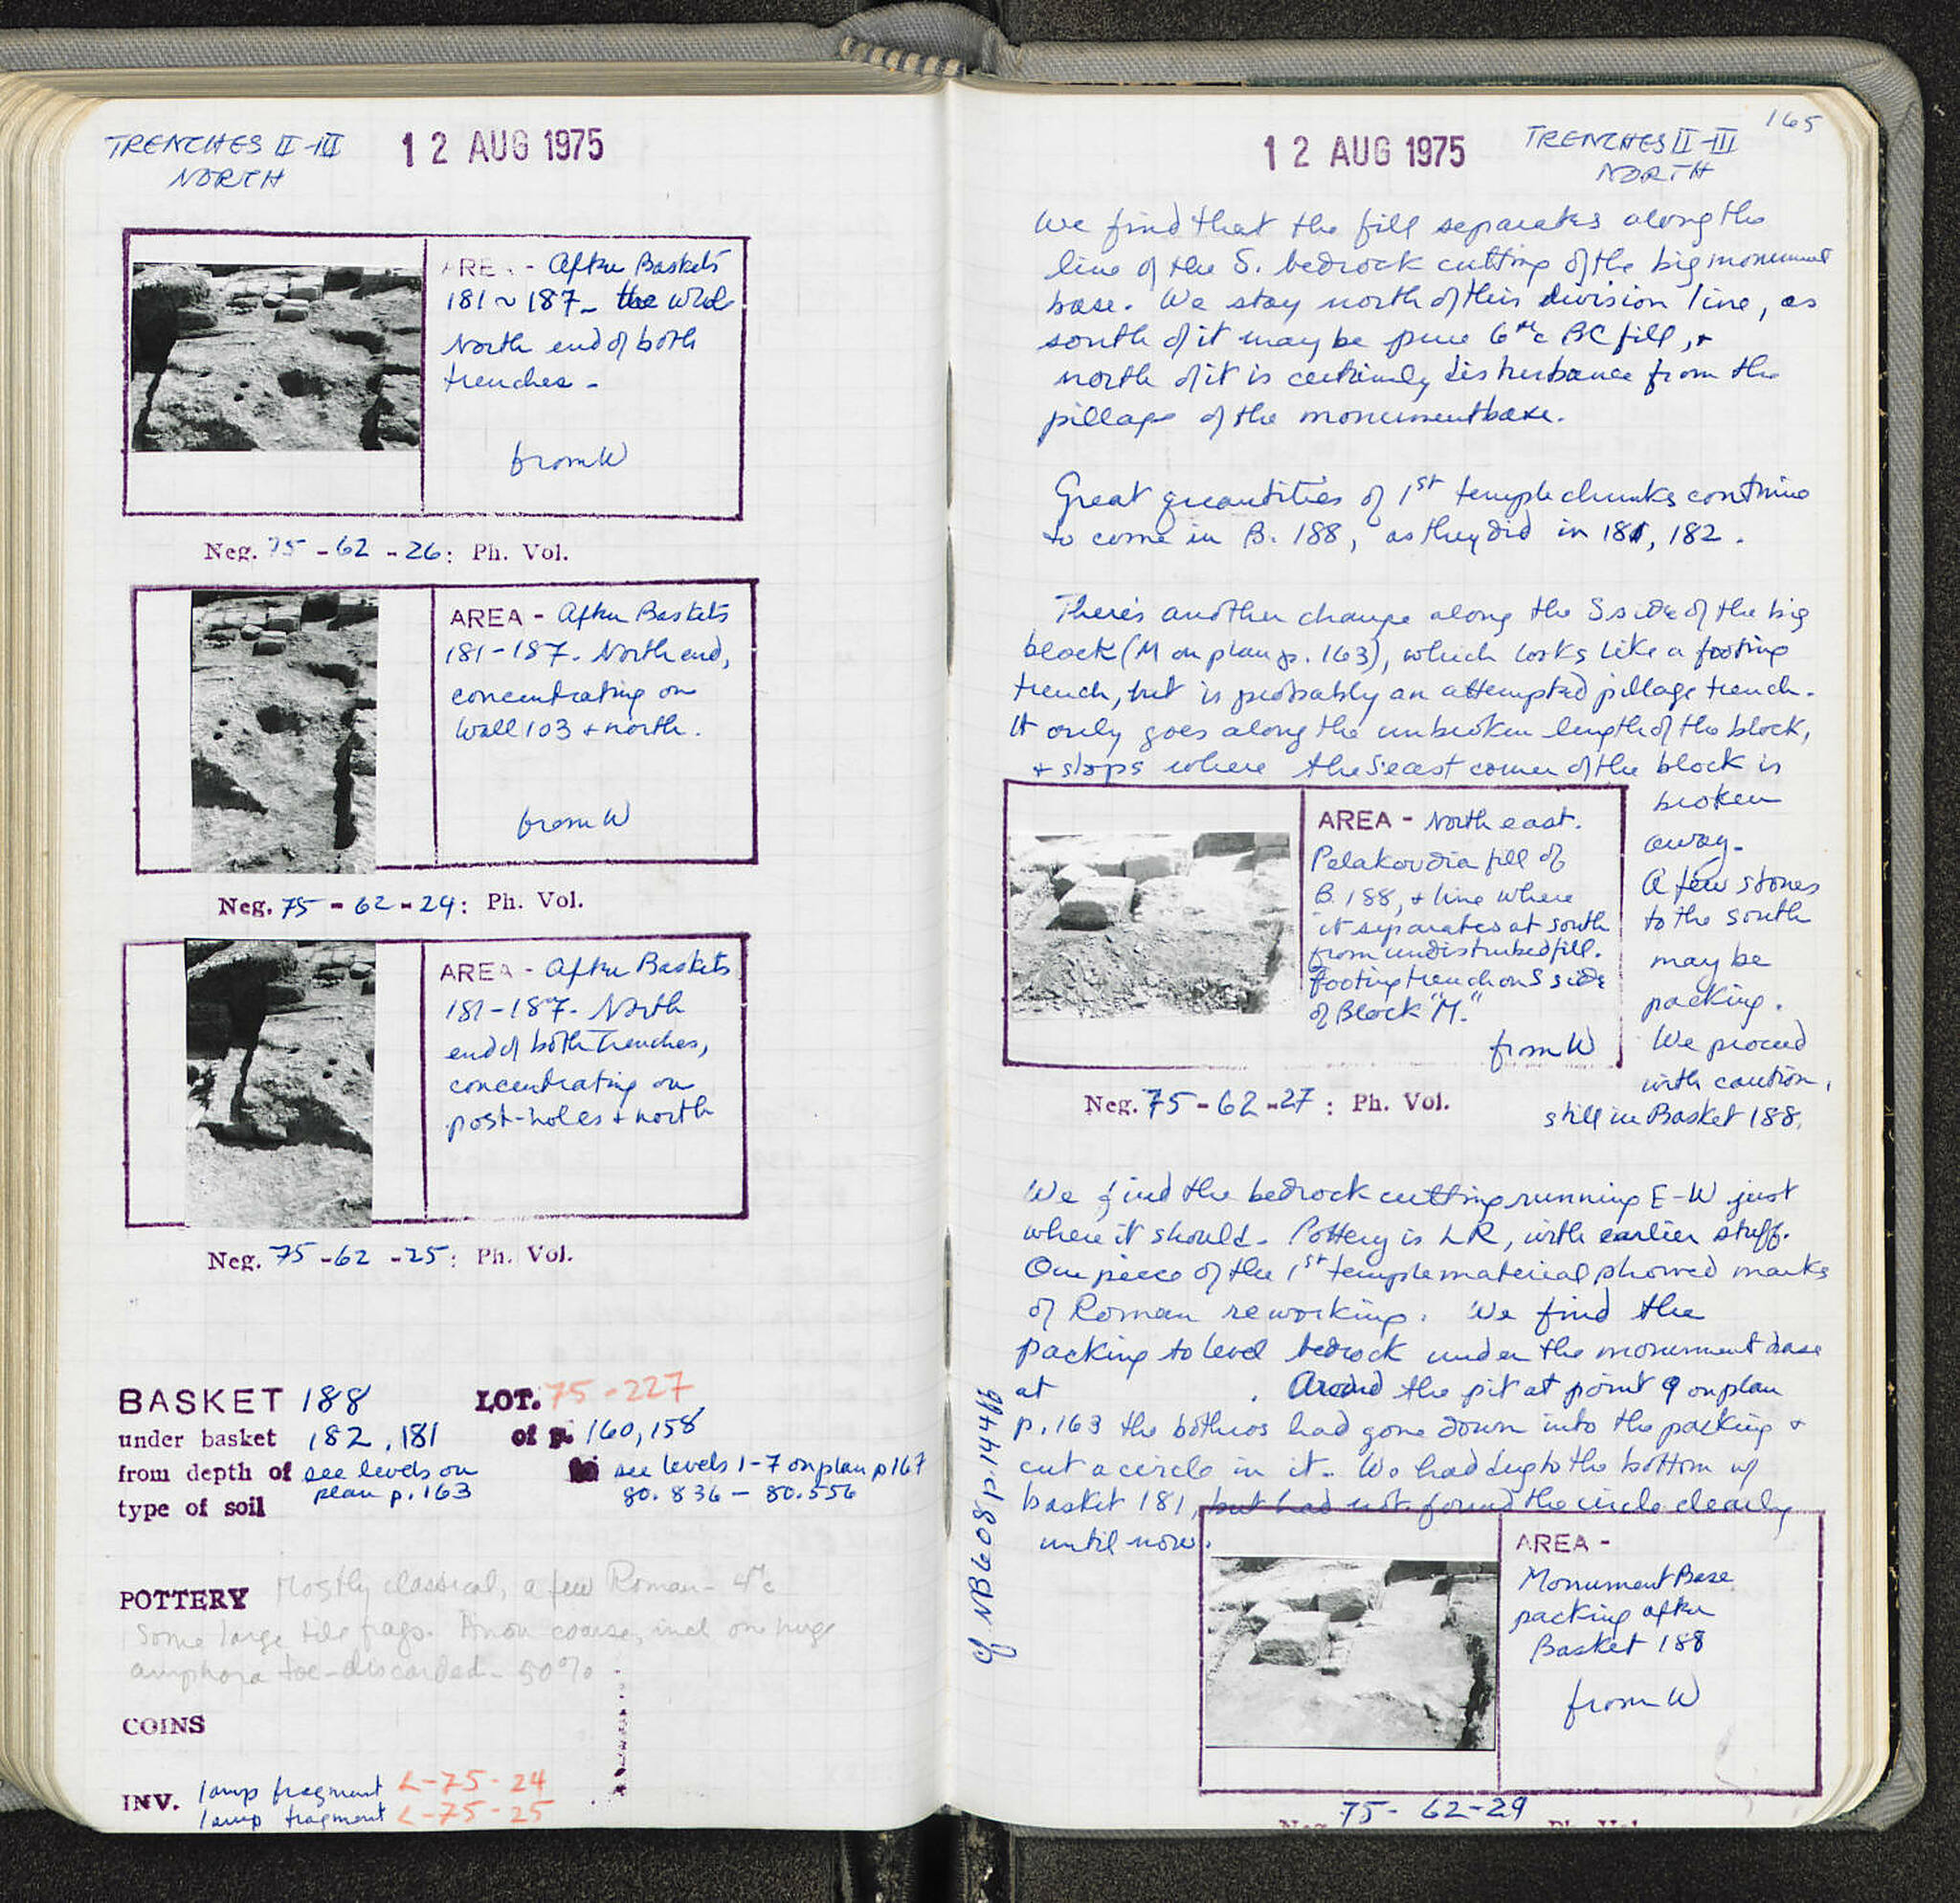 TRENCHES II-III
NORTH
12 AUG 1975
AREA - After Baskets
181~187 - the whole
North end of both
trenches -
from W
Neg. 75-62-26: Ph. Vol.
AREA - After Baskets
181-187. North end,
concentrating on
wall 103 + north.
from W
Neg. 75-62-24: Ph. Vol.
AREA - After Baskets
181-187. North
end of both Trenches,
concentrating on
post-holes + north
Neg. 75-62-25: Ph. Vol.
BASKET 188 LOT. 75-227
under basket 182, 181 of p. 160, 158
from depth of see levels on plan p. 163 to see levels 1-7 on plan p 167
80.836 - 80.556
type of soil
POTTERY Mostly classical, a few Roman - 4th c
Some large tile frags. coarse, incl one huge
amphora toe - discarded - 50%
COINS
INV. lamp fragment L-75-24
lamp fragment L-75-25
165
12 AUG 1975
TRENCHES II-III
NORTH
We find that the fill separates along the
line of the S. bedrock cutting of the big monument
base. We stay north of this division line, as
south of it may be pure 6th c BC fill, +
north of it is certainly disturbance from the
pillage of the monument base.
Great quantities of 1st temple chunks continue
to come in B. 188, as they did in 181, 182.
There's another change along the S side of the big
block (M on plan p. 163), which looks like a footing
trench, but is probably an attempted pillage trench.
It only goes along the unbroken length of the block,
+ stops where the S east corner of the block is
broken
away.
A few stones
to the south
may be
packing.
We proceed
with caution,
still in Basket 188.
AREA - North east.
Pelakoudia fill of
B. 188, + line where
it separates at south
from undisturbed fill.
Footing trench on S side
of Block "M."
from W
Neg. 75-62-27: Ph. Vol.
We find the bedrock cutting running E-W just
where it should. Pottery is LR, with earlier stuff.
One piece of the 1st temple material showed marks
of Roman reworking. We find the
packing to level bedrock under the monument base
at . Around the pit at point 9 on plan
p. 163 the bothros had gone down into the packing +
cut a circle in it. We had dug to the bottom w/
basket 181, but had not found the circle clearly
until now.
cf NB 608 p. 144 bb
AREA -
Monument Base
packing after
Basket 188
from W
Neg. 75-62-29 Ph. Vol.